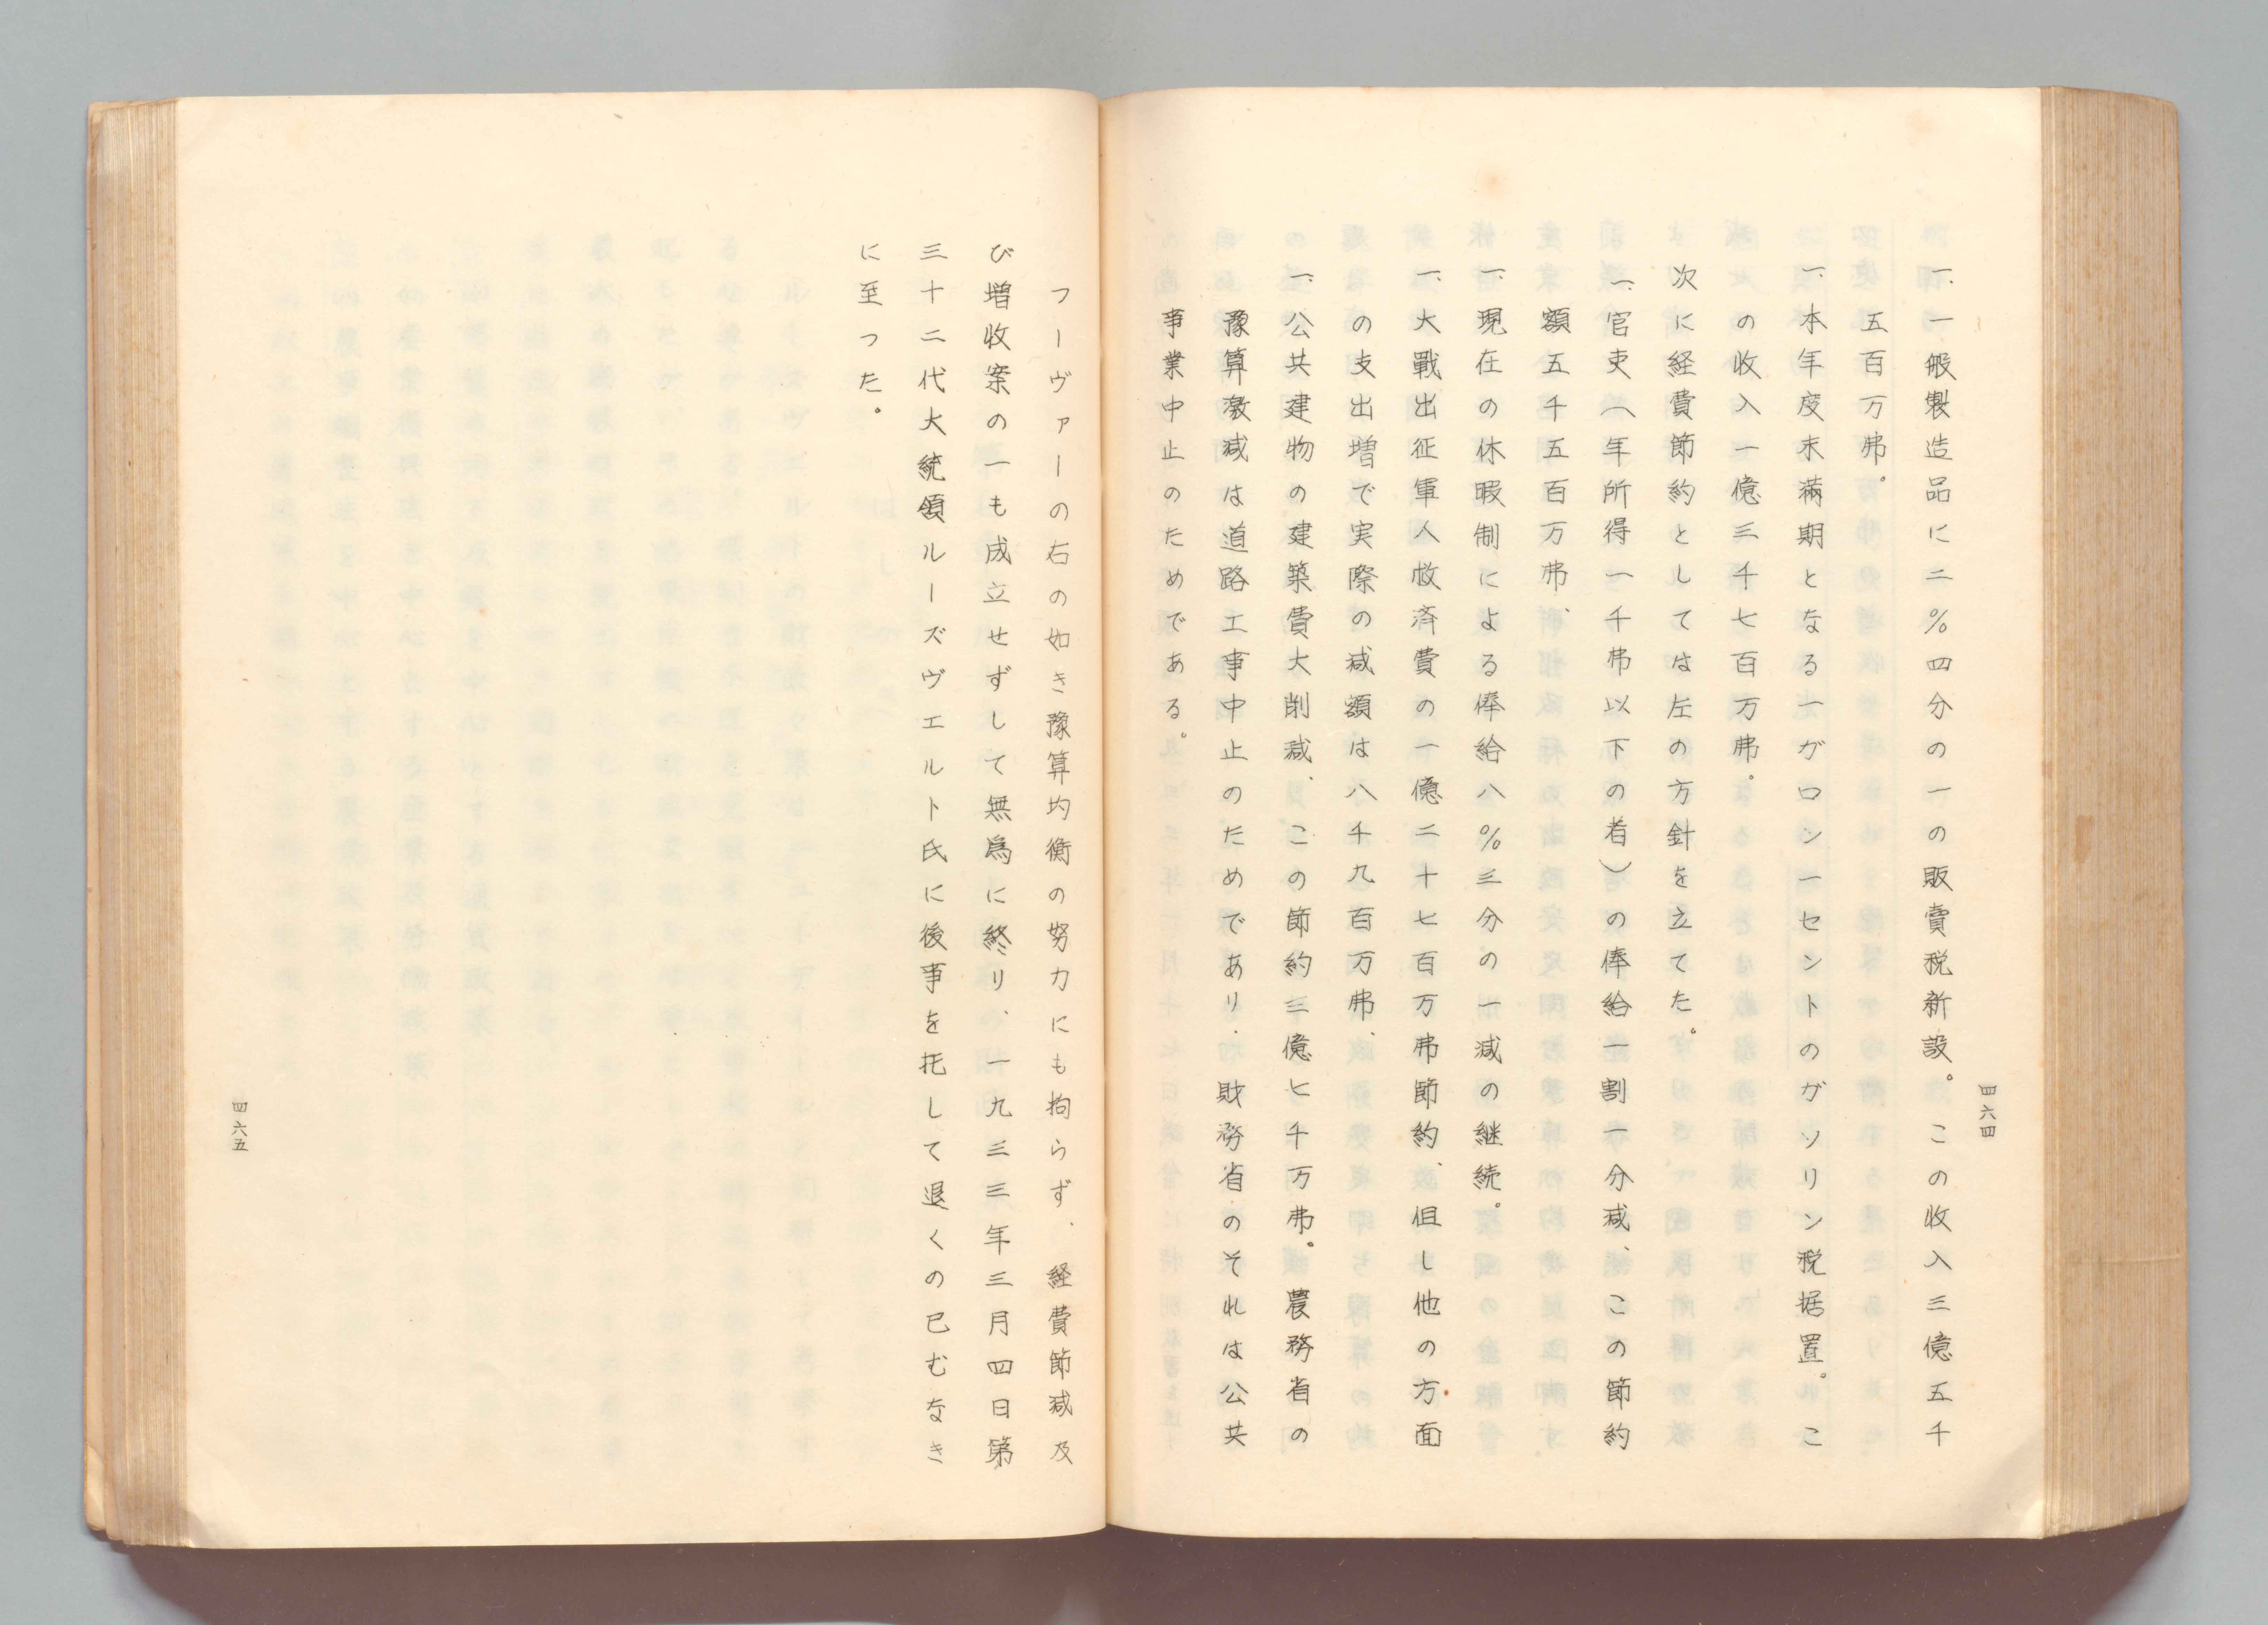 四六四
一、一般製造品に二％四分の一の販賣税新設。この收入三億五千
五百万弗。
一、本年度末滿期となる一ガロン一セントのガソリン税据置。こ
の收入一億三千七百万弗。
次に経費節約としては左の方針を立てた。
一、官吏（年所得一千弗以下の者）の俸給一割一分減、この節約
額五千五百万弗、
一、現在の休暇制による俸給八％三分の一減の継続。
一、大戰出征軍人救済費の一億二十七百万弗節約、但し他の方面
の支出増で実際の減額は八千九百万弗、
一、公共建物の建築費大削減、この節約三億七千万弗。農務省の
豫算激減は道路工事中止のためであり．財務省のそれは公共
事業中止のためである。
フーヴァーの右の如き豫算均衡の努力にも拘らず、経費節減及
び増收案の一も成立せずして無爲に終り、一九三三年三月四日第
三十二代大統領ルーズヴエルト氏に後事を托して退くの已むなき
に至つた。
四六五